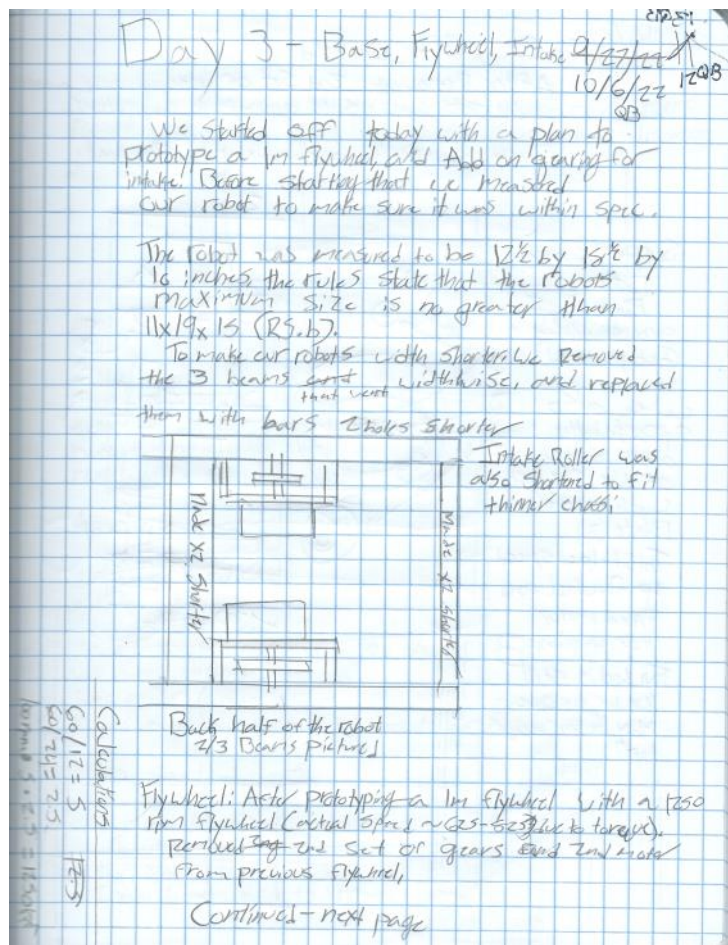 Day 3 - Base, Flywheel, Intake 9/27/22
10/6/22
QB
12QB
We started off today with a plan to
prototype a 1m flywheel, and Add on gearing for
intake. Before starting that we measured
our robot to make sure it was within spec.
The robot was measured to be 12½ by 18½ by
16 inches, the rules state that the robots
maximum size is no greater than
11x19x15 (R5.b).
To make our robots width shorter, we Removed
the 3 beams that went widthwise, and replaced
them with bars 2 holes shorter
Intake Roller was
also shortened to fit
thinner chassi
Made x2 Shorter
Made x2 Shorter
Back half of the robot
2/3 Beams pictured
Calculations
60/12 = 5
60/24 = 2.5
12.5
Flywheel: After prototyping a 1m flywheel with a 1250
rpm flywheel (actual speed ~ due to torque).
Removed 2nd set of gears and 2nd motor
from previous flywheel,
Continued - next page